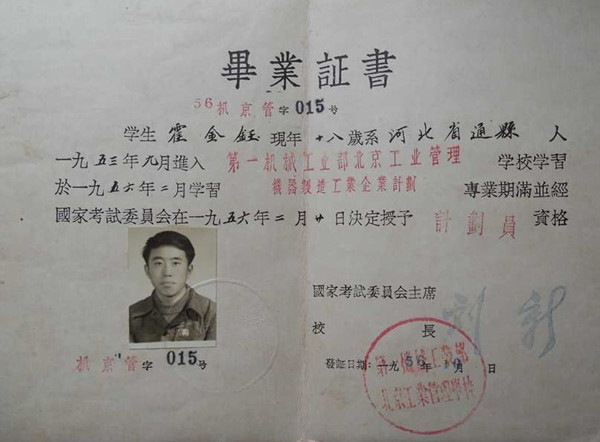 畢業証書
56机京管字015号
學生 霍金鈺 現年 十八歲系 河北省通縣 人
一九五三年九月進入 第一机械工业部北京工业管理 學校學習
於一九五六年二月學習 機器製造工業企業計劃 專業期滿並經
國家考試委員会在一九五六年二月廿日決定授予 計劃員 資格
國家考試委員会主席
校長
机京管字015号
發証日期:一九56年 月 日
第一機械工業部
北京工業管理學校